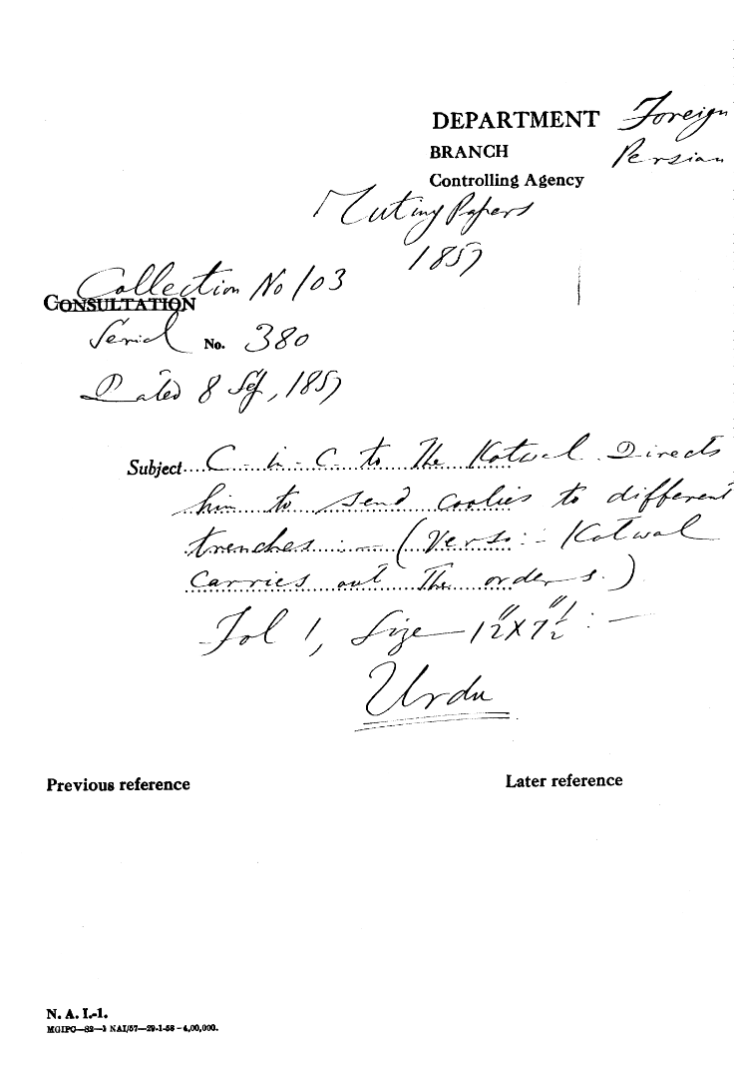 DEPARTMENT Foreign
BRANCH Persian
Controlling Agency
Mutiny Papers
1857
Collection No 103
CONSULTATION
Serial No. 380
Dated 8 Sep, 1857
Subject C-in-C. to The Kotwal. Directs
him to send coolies to different
trenches :— (Verso :- Kotwal
carries out The orders.)
Fol 1, Size 12" x 7"½ :—
Urdu
Previous reference Later reference
N. A. I.-1.
MGIPC—82—1 NAI/57—29-1-58—4,00,000.